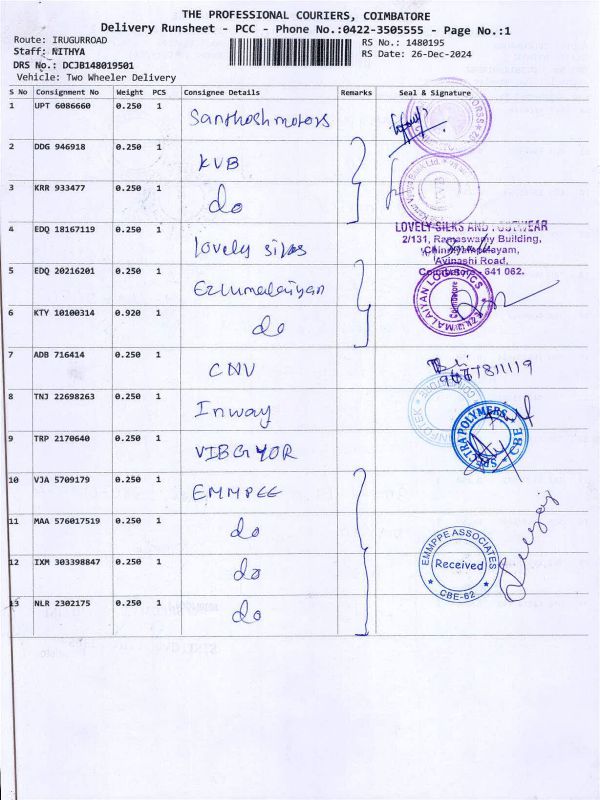 THE PROFESSIONAL COURIERS, COIMBATORE
Delivery Runsheet - PCC - Phone No.:0422-3505555 - Page No.:1
Route: IRUGURROAD
RS No.: 1480195
Staff: NITHYA
RS Date: 26-Dec-2024
DRS No.: DCJB148019501
Vehicle: Two Wheeler Delivery
S No Consignment No Weight PCS Consignee Details Remarks Seal & Signature
1 UPT 6086660 0.250 1 Santhosh motors
2 DDG 946918 0.250 1 KVB
3 KRR 933477 0.250 1 do
4 EDQ 18167119 0.250 1 lovely silks
LOVELY SILKS AND FOOTWEAR
2/131, Ramaswamy Building,
Chinniyampalayam,
Avinashi Road,
Coimbatore - 641 062.
5 EDQ 20216201 0.250 1 Ezhumalaiyan
6 KTY 10100314 0.920 1 do
7 ADB 716414 0.250 1 CNV
8 TNJ 22698263 0.250 1 Inway
9 TRP 2170640 0.250 1 VIBGYOR
SPECTRA POLYMERS
CBE
10 VJA 5709179 0.250 1 EMMPEE
11 MAA 576017519 0.250 1 do
12 IXM 303398847 0.250 1 do
EMMPPE ASSOCIATES
Received
CBE-62
13 NLR 2302175 0.250 1 do